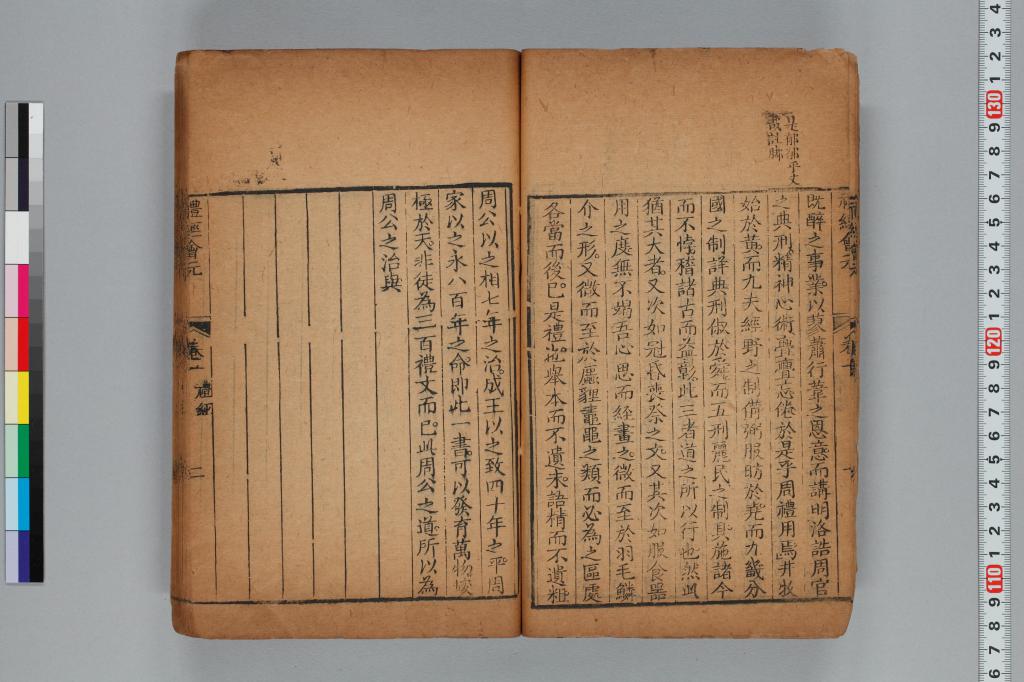 是郁郁乎文
哉註脚
既醉之事業以蓼蕭行葦之恩意而講明洛誥周官
之典刑精神心術亹亹忘倦於是乎周禮用焉井牧
始於黃而九夫經野之制備弼服昉於堯而九畿分
國之制詳典刑俶於舜而五刑麗民之制具施諸今
而不悖稽諸古而益彰此三者道之所以行也然此
猶其大者又次如冠昏喪祭之文又其次如服食器
用之度無不竭吾心思而經畫之微而至於羽毛鱗
介之形又微而至於廬貍鼃黽之類而必為之區處
各當而後已是禮也舉本而不遺末語精而不遺粗
周公以之相七年之治成王以之致四十年之平周
家以之永八百年之命即此一書可以發育萬物峻
極於天非徒為三百禮文而已此周公之道所以為
周公之治與
禮經會元
卷一
禮經
二